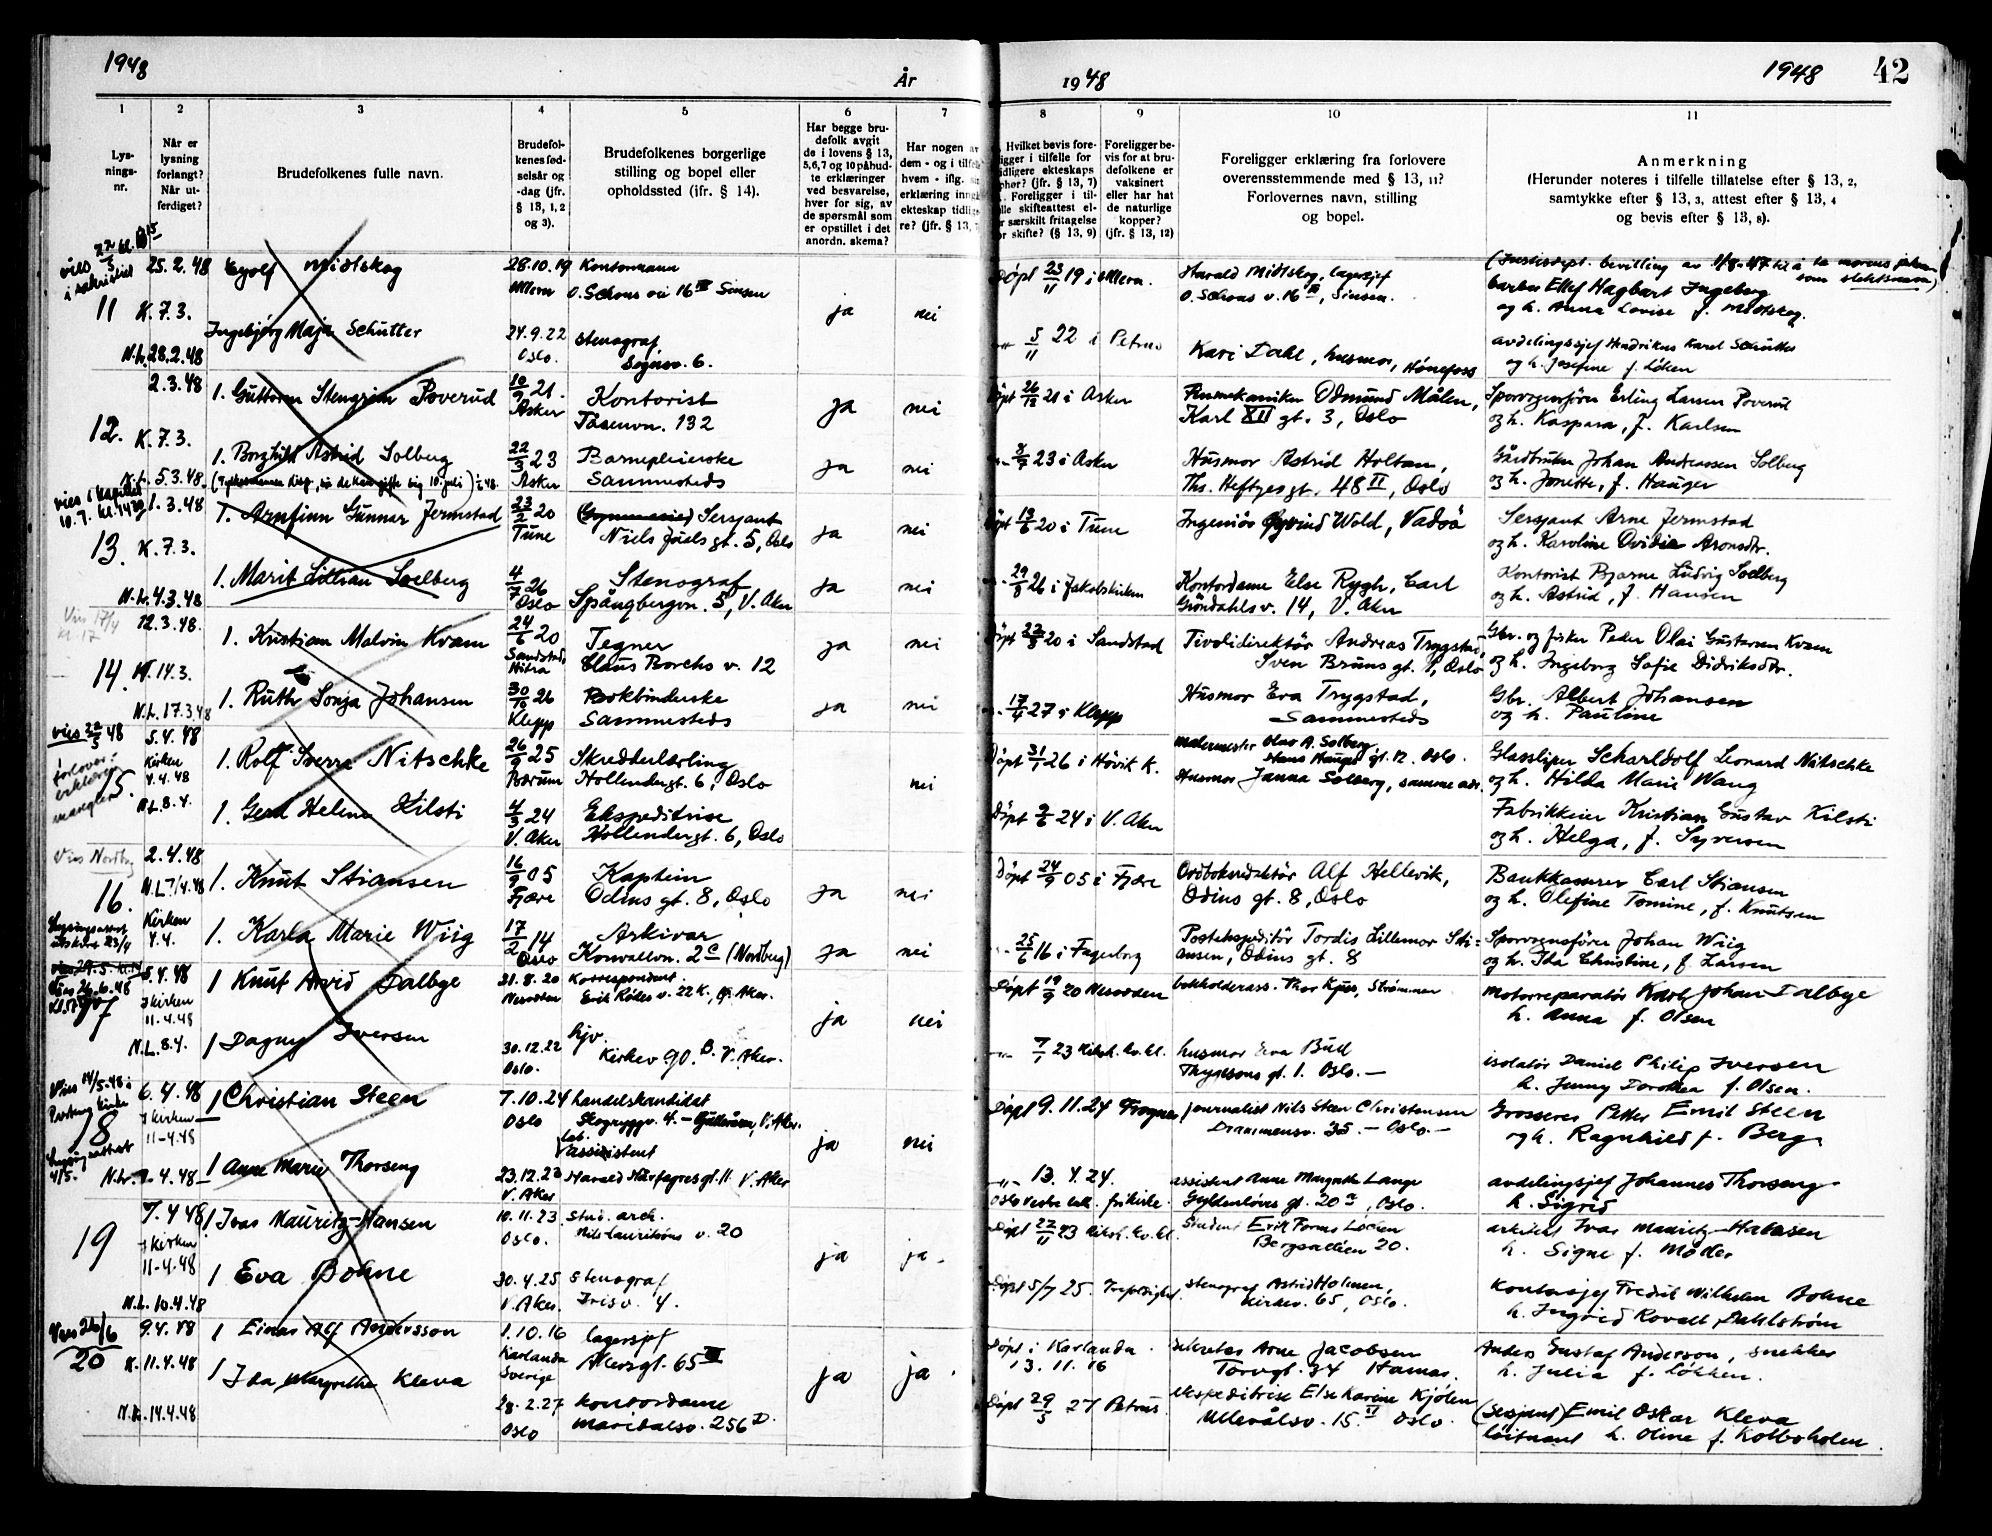 1948
År
1948
1948
42
1
2
3
4
5
6
7
8
9
10
11
Lys-
nings-
nr.
Når er
lysning
forlangt?
Når ut-
ferdiget?
Brudefolkenes fulle navn.
Brudefol-
kenes fød-
selsår og
-dag (jfr.
§ 13, 1, 2
og 3).
Brudefolkenes borgerlige
stilling og bopel eller
opholdssted (ifr. § 14).
Har begge bru-
defolk avgit
de i lovens § 13,
5,6,7 og 10 påbud-
te erklæringer
ved besvarelse,
hver for sig, av
de spørsmål som
er opstillet i det
anordn. skema?
Har nogen av
dem - og i tilfelle
hvem - iflg.
erklæring inngått
ekteskap tidlige-
re? (jfr. § 13,
Hvilket bevis fore-
ligger i tilfelle for
tidligere ekteskaps
ophør? (jfr. § 13, 7)
Foreligger i til-
felle skifteattest el-
ler særskilt fritagelse
for skifte? (§ 13, 9)
Foreligger be-
vis for at bru-
defolkene er
vaksinert
eller har hat
de naturlige
kopper?
(jfr. § 13, 12)
Foreligger erklæring fra forlovere
overensstemmende med § 13, 11?
Forlovernes navn, stilling
og bopel.
Anmerkning
(Herunder noteres i tilfelle tillatelse efter § 13, 2,
samtykke efter § 13, 3, attest efter § 13, 4
og bevis efter § 13, 8).
11
25.2.48
K. 7.3.
N.L. 28.2.48
Eyolf Midtskog
28.10.19
Kontormann
O. Schous vei 16 III Sinsen
ja
nei
Døpt 23/11 19 i
Harald Midtskog, lagersjef
O. Schous v. 16 III, Sinsen.
(Justisdept. bevilling av 1/8-47 til å ta morens
som slektsnavn)
Ellef Hagbart Ingeberg
og h. Anna Lovise f. Midtskog.
Ingebjørg Maja Schutter
24.9.22
Oslo.
Stenograf
Sognsv. 6.
5/11 22 i Petrus
Kari Dahl, husmor, Hønefoss
avdelingssjef Hendrikus Karel Schutter
og h. Josefine f. Løken
12.
2.3.48
K. 7.3.
N.L. 5.3.48
1. Guttorm Stengrim Poverud
10/9 21.
Asker
Kontorist
Tåsenvn. 132
ja
nei
Døpt 26/12 21 i Asker
Odmund Målen,
Karl XII gt. 3, Oslo
Sporvognsfører Erling Larsen Poverud
og h. Kaspara, f. Karlsen
1. Borghild Astrid Solberg
22/3 23
Asker
Barnepleierske
Sammesteds
ja
nei
23 i Asker
Husmor Astrid Holtan,
Ths. Heftyes gt. 48 II, Oslo
Gårdbruker Johan Anderssen Solberg
og h. Jonette, f. Hauger
vies i kapellet
10.7. kl. 1430
13.
1.3.48
K. 7.3.
N.L. 4.3.48
1. Arnfinn Gunnar Jermstad
23/2 20
Tune
Sersjant
Niels Juels gt. 5, Oslo
ja
nei
Døpt 13/6 20 i Tune
Ingeniør Øyvind Wold, Vadsø
Sersjant Arne Jermstad
og h. Karoline Ovidie Aronsdtr.
1. Marit Lillian Soelberg
4/7 26
Oslo
Stenograf
Spångbergvn. 5, V. Aker
ja
nei
29/8 26 i Jakobskirken
Kontordame Else Rygh, Carl
Grøndahls v. 14, V. Aker
Kontorist Bjarne Ludvig Soelberg
og h. Astrid, f. Hansen
Vies 17/4
kl. 17
14.
12.3.48.
K. 14.3.
N.L. 17.3.48
1. Kristian Malvin Kvam
24/6 20
Sandstad,
Hitra
Tegner
Claus Borchs v. 12
ja
nei
Døpt 22/8 20 i Sandstad
Tivolidirektør Andreas Trygstad,
Sven Bruns gt. 1, Oslo
Gbr. og fisker Peder Olai Gustavsen Kvam
og h. Ingeborg Sofie Didriksdtr.
1. Ruth Sonja Johansen
30/10 26
Klepp
Bokbinderske
Sammesteds
ja
nei
17/4 27 i Klepp
Husmor Eva Trygstad,
Sammesteds
Gbr. Albert Johansen
og h. Pauline
vies 22/5 48
forlover-
erklæring
mangler
15.
5.4.48
Kirken
4.4.48
N.L. 8.4.
1. Rolf Sverre Nitschke
26/9 25
Bærum
Skredderlærling
Hollendergt. 6, Oslo
nei
Døpt 31/1 26 i Høvik K.
malermester Olav A. Solberg
Hans Hauges gt. 12. Oslo.
Husmor Janna Solberg, samme adr.
Glassliper Scharldolf Leonard Nitschke
og h. Hilda Marie Wang
1. Gerd Helene Kilsti
4/3 24
V. Aker
Ekspeditrise
Hollendergt. 6, Oslo
Døpt 9/6 24 i V. Aker
Fabrikkeier Kristian Gustav Kilsti
og h. Helga, f. Syversen
Vies Nordby
16.
Lysningsattest
utskrevet 23/4
2.4.48
N.L. 7/4.48
Kirken
4.4.
1. Knut Stiansen
16/9 05
Fjære
Kaptein
Odins gt. 8, Oslo
ja
nei
Døpt 24/9 05 i Fjære
Ordboksredaktør Alf Hellevik,
Odins gt. 8, Oslo
Bankkasserer Carl Stiansen
og h. Olefine Tomine, f. Knutsen
1. Karla Marie Wiig
17/2 14
Oslo
Arkivar
Konvallvn. 2 c (Nordberg)
ja
nei
25/6 16 i Fagerborg
Postekspeditør Tordis Lillemor Sti-
ansen, Odins gt. 8
Sporvognsfører Johan Wiig
og h. Ida Christine, f. Larsen
17
5.4.48
i kirken
11-4.48
N.L. 8.4.
1 Knut Arvid Dalbye
31.8.20
Nesodden
Korrespondent.
Erik Røkes v. 22 K., V. Aker.
ja
nei
Døpt 19/9 20 Nesodden
bokholderass. Thor Kjus, Strømmen
Motorreparatør Karl Johan Dalbye
h. Anna f. Olsen
1 Dagny Iversen
30.12.22
Oslo.
hjv.
Kirkev 90. B. V. Aker.
7/1 23
husmor Eva Bull
Thygesons gt. 1. Oslo. —
isolatør Daniel Philip Iversen
h. Jenny Dorothea f. Olsen.
Vies 14/5-48 i
18
Lysningsattest
4/5.
6.4.48
i kirken
11-4.48
1 Christian Steen
7.10.24
Oslo
handelskandidat
Skogryggv. 4. - , V. Aker.
ja
nei
Døpt 9.11.24 Frogner
Journalist Nils Steen Christensen
Drammensv. 35. - Oslo. -
Grosserer Petter Emil Steen
og h. Ragnhild f. Berg
1 Anne Marie Thorseng
23.12.23
V. Aker
Lab.
assistent
Harald Hårfagres gt. 11 V. Aker
13.4.24.
Oslo vestre frikirke.
assistent Anne Margrethe Lange
Gyldenløves gt. 20 a, Oslo.
avdelingsjef Johannes Thorseng
h. Sigrid
19
7.4.48
i kirken
11-4.48
N.L. 10.4.48
1 Ivar Mauritz-Hansen
10.11.23
Oslo.
stud. arch.
Nils Lauritsøns v. 20
ja
ja-
Døpt 22/11 23
Student Erik Løchen
Bergsalléen 20.
arkitekt Ivar Mauritz-Hansen
h. Signe f. Møller
1 Eva Bohne
30.4.25
V. Aker.
Stenograf
Irisv. 4.
Døpt 5/7 25. Trefoldighet.
stenograf Astrid Holmen,
Kirkev. 65, Oslo.
Kontorsjef Fredrik Wilhelm Bohne
h. Ingrid Dahlstrøm
Vies 26/6
20
9.4.48
K. 11.4.48
N.L. 14.4.48
1 Einar Alf Andersson
1.10.16
Karlanda
Sverige
lagersjef
Akersgt. 65 III
ja
ja.
Døpt i Karlanda.
13.11.16
sekretær Arne Jacobsen
Torvgt. 34 Hamar.
Anders Gustaf Anderson, snekker
h. Julia f. Løkken.
1 Ida Margrethe Kleva
28.2.27
Oslo
kontordame
Maridalsv. 256 D.
Døpt 29/5 27 Petrus.
ekspeditrise Else Karine Kjølen
Ullevålsv. 15. II Oslo.
(Sersjant) Emil Oskar Kleva
løitnant h. Oline f. Kolboholen.